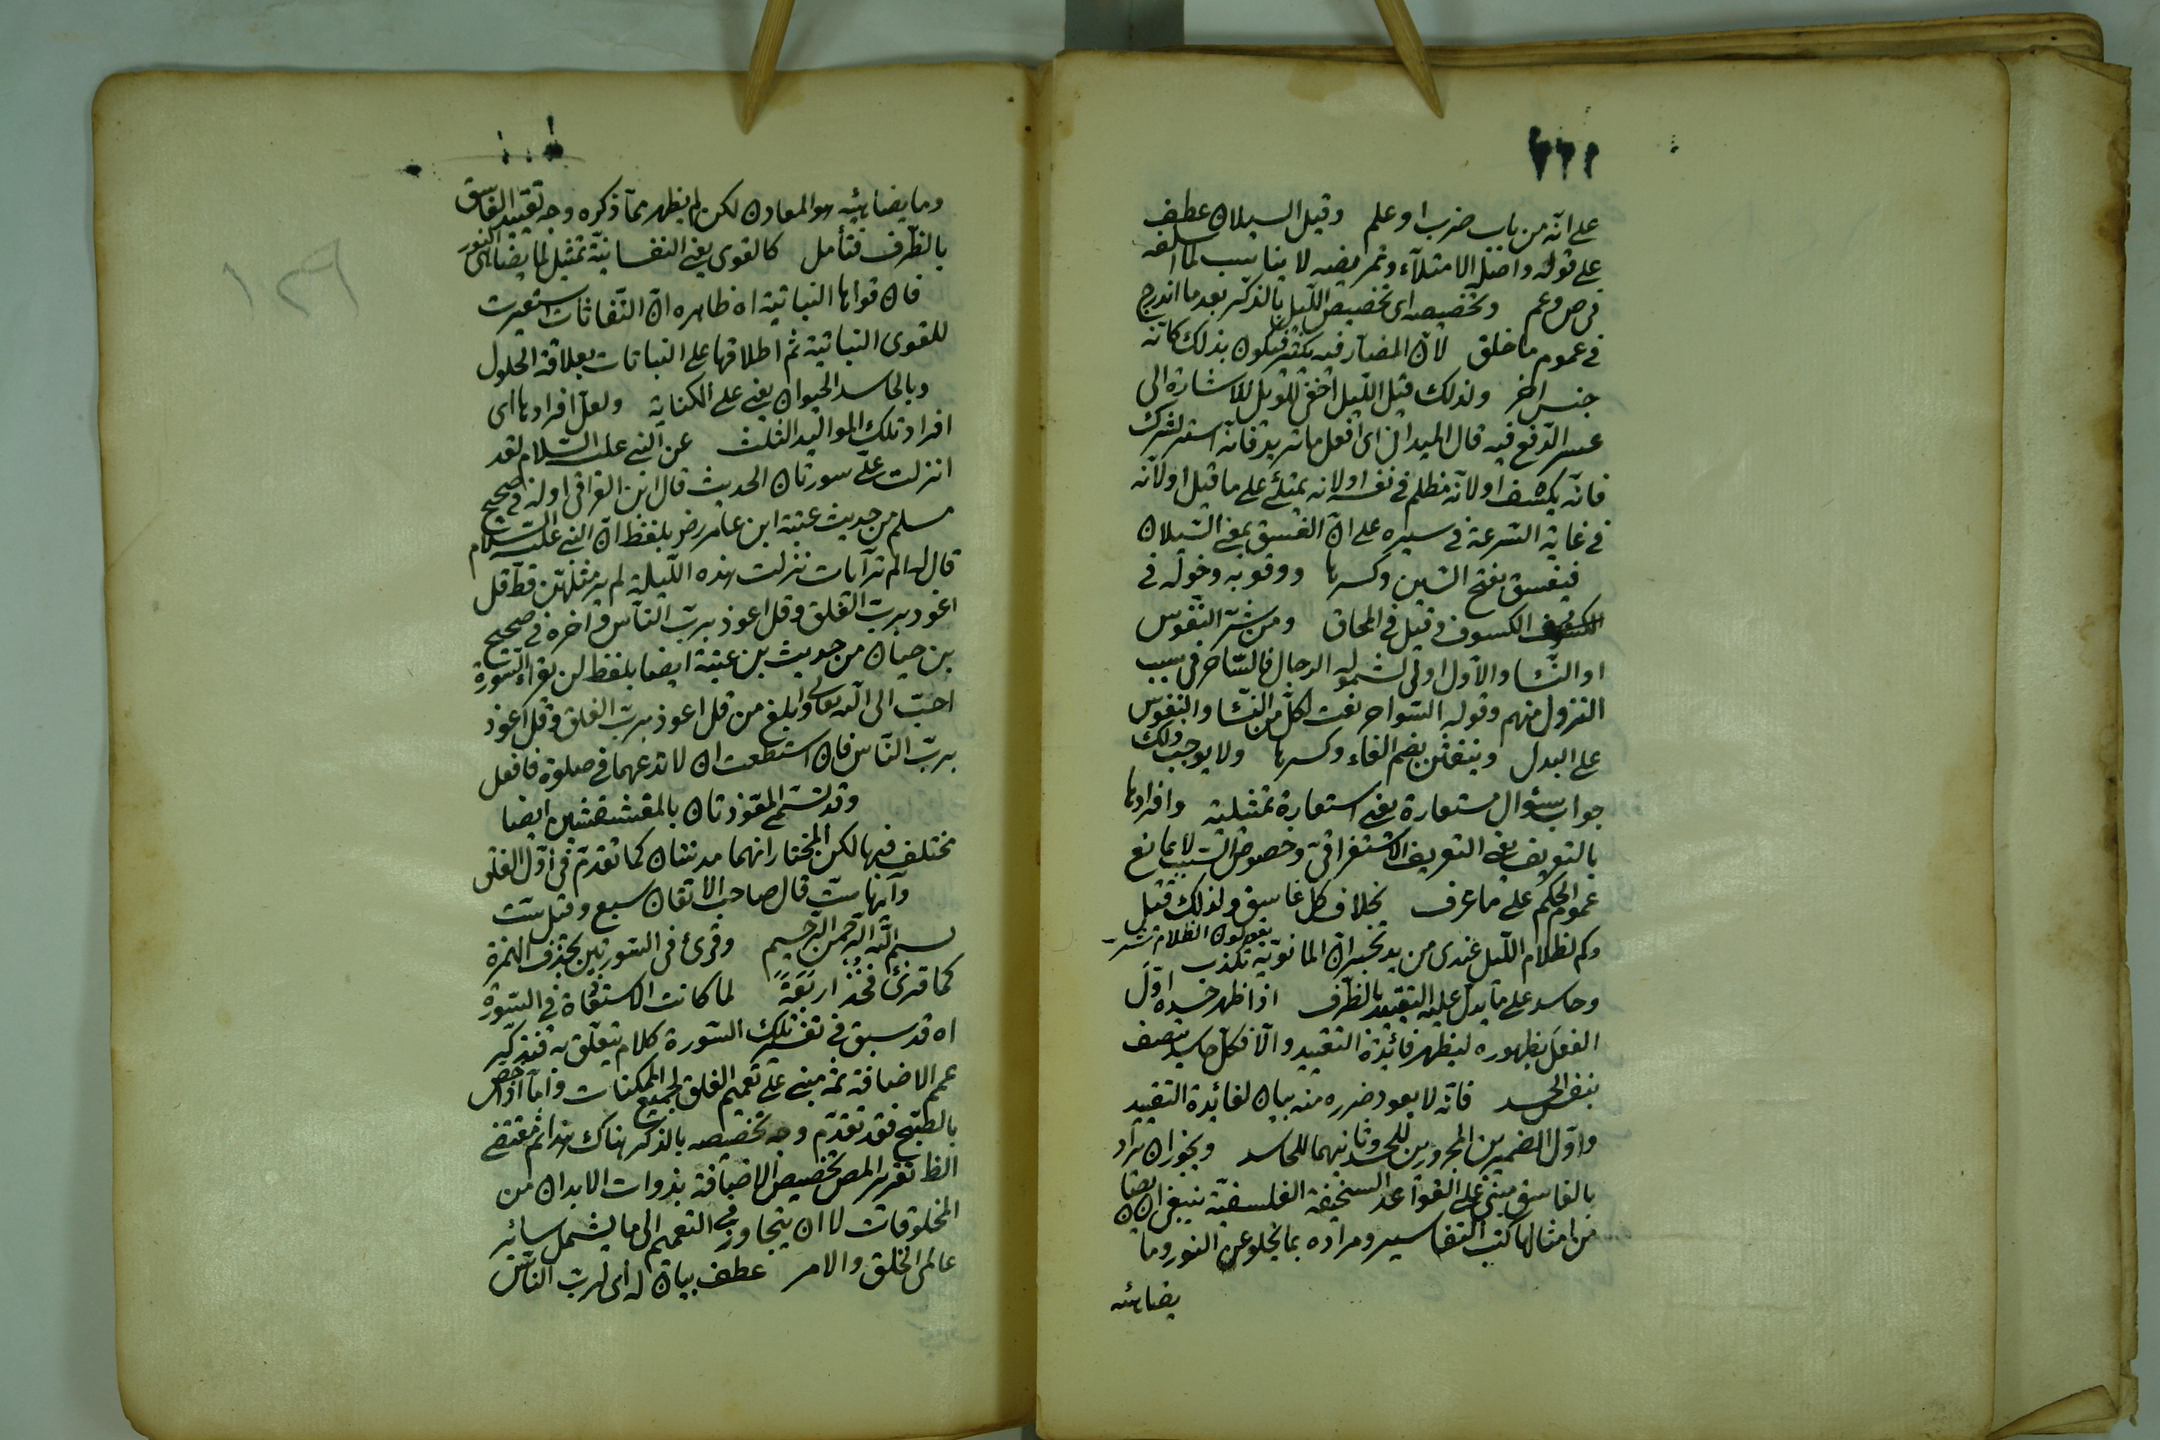 على انه من باب ضرب او علم وقيل السيلان عطف
على قوله واصله الامتلاء وتمريضه لا يناسب لما اسلفه
في ص وعم وتخصيصه اى تخصيص الليل بالذكر بعد ما اندرج
في عموم ما خلق لان المضار فيه تكثر فيكون بذلك كانه
جنس اخر ولذلك قيل الليل اخفى للويل للاشارة الى
عسر الدفع فيه قال الميدانى اى افعل ما تريد فانه استر لسرك
فانه يكسف او لانه مظلم في نفسه او لانه يمتلئ على ما قيل او لانه
في غاية السرعة في سيره على ان الغسق بمعنى السيلان
فيغسق بفتح السين وكسرها ووقوبه دخوله في
الكسوف وقيل في المحاق ومن شر النفوس
او النسا والاول اولى لشموله الرجال فالساحر في سبب
النزول منهم وقوله السواحر نعت لكل من النسا والنفوس
على البدل وينفثن بضم الفاء وكسرها ولا يوجب ذلك
جواب سؤال مستعارة يعنى استعارة تمثيلية وافرادها
بالتعريف يعنى التعريف الاستغراقى وخصوص السبب لا يمانع
عموم الحكم على ما عرف بخلاف كل غاسق ولذلك قيل
وكم لظلام الليل عندى من يد تخبر ان المانوية تكذب
يقولون الظلام شر
وحاسد على ما يدل عليه التقييد بالظرف اذا اظهر حسده اول
الفعل بظهوره ليظهر فائدة التقييد والا فكل حاسد متصف
بنفس الحسد فانه لا يعود ضرره منه بيان لفائدة التقييد
واول الضميرين المجرورين للحسد وثانيهما للحاسد ويجوز ان يراد
بالغاسق مبنى على القواعد السخيفة الفلسفية ينبغى ان يصان
من امثالها كتب التفاسير ومراده بما يخلو عن النور وما
يضاهيه
وما يضاهيه هو المعادن لكن لم يظهر مما ذكره وجه تقييد الغاسق
بالظرف فتأمل كالقوى يعنى النفسانية تمثيل لما يضاهى النور
فان قواها النباتية اه ظاهره ان النفاثات استعيرت
للقوى النباتية ثم اطلاقها على النباتات بعلاقة الحلول
وبالحاسد الحيوان يعنى على الكناية ولعل افرادها اى
افراد تلك المواليد الثلث عن النبى عليه السلام لقد
انزلت على سورتان الحديث قال ابن العراقى اوله في صحيح
مسلم من حديث عتبة ابن عامر رضو بلفظ ان النبى عليه السلام
قال له الم تر آيات نزلت هذه الليلة لم ير مثلهن قط قل
اعوذ برب الفلق وقل اعوذ برب الناس واخره في صحيح
بن حبان من حديث بن عتبة ايضا بلفظ لن تقرأ سورة
احب الى الله تعالى وابلغ من قل اعوذ برب الفلق وقل اعوذ
برب الناس فان استطعت ان لا تدعهما في صلوة فافعل
وقد تسمى المعوذتان بالمقشقشتين ايضا
مختلف فيها لكن المختار انهما مدنيتان كما تقدم في اول الفلق
وآيها ست قال صاحب الاتقان سبع وقيل ست
بسم الله الرحمن الرحيم وقرئ في السورتين بحذف الهمزة
كما قرئ فخذ اربعة لما كانت الاستعاذة في السورة
اه قد سبق في تفسير تلك السورة كلام يتعلق به فتذكر
عمم الاضافة ثمه مبنى على تعميم الفلق لجميع الممكنات واما اذا خص
بالصبح فقد تقدم وجه تخصيصه بالذكر هناك هذا ثم مقتضى
الظ تقرير المص تخصيص الاضافة بذوات الابدان من
المخلوقات لا ان يتجاوز في التعميم الى ما يشمل سائر
عالمى الخلق والامر عطف بيان له اى لرب الناس
١٢٩